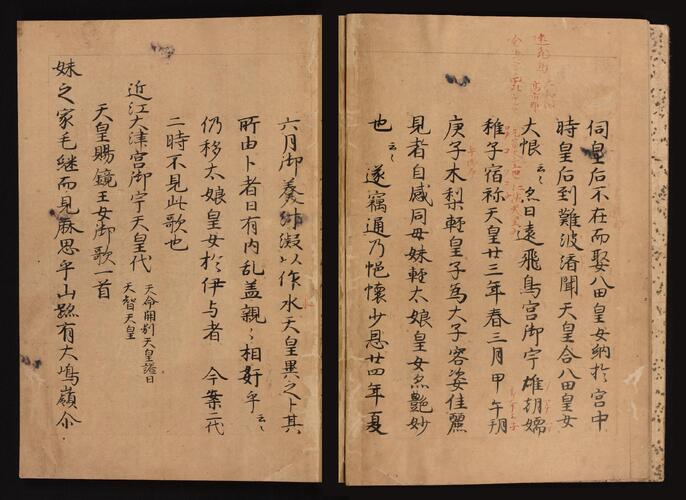 伺皇后不在而娶八田皇女納於宮中
時皇后到難波済聞天皇合八田皇女
大恨云々亦曰遠飛鳥宮御宇雄朝嬬
稚子宿祢天皇廿三年春三月甲午朔
庚子木梨軽皇子為太子容姿佳麗
見者自感同母妹軽太娘皇女亦艶妙
也云々遂竊通乃悒懐少息廿四年夏
六月御羮汁凝以作氷天皇異之卜其
所由卜者曰有内乱盖親々相奸乎云々
仍移太娘皇女於伊与者 今案二代
二時不見此歌也
近江大津宮御宇天皇代 天命開別天皇謚曰
天智天皇
天皇賜鏡王女御歌一首
妹之家毛継而見麻思乎山跡有大嶋嶺尓